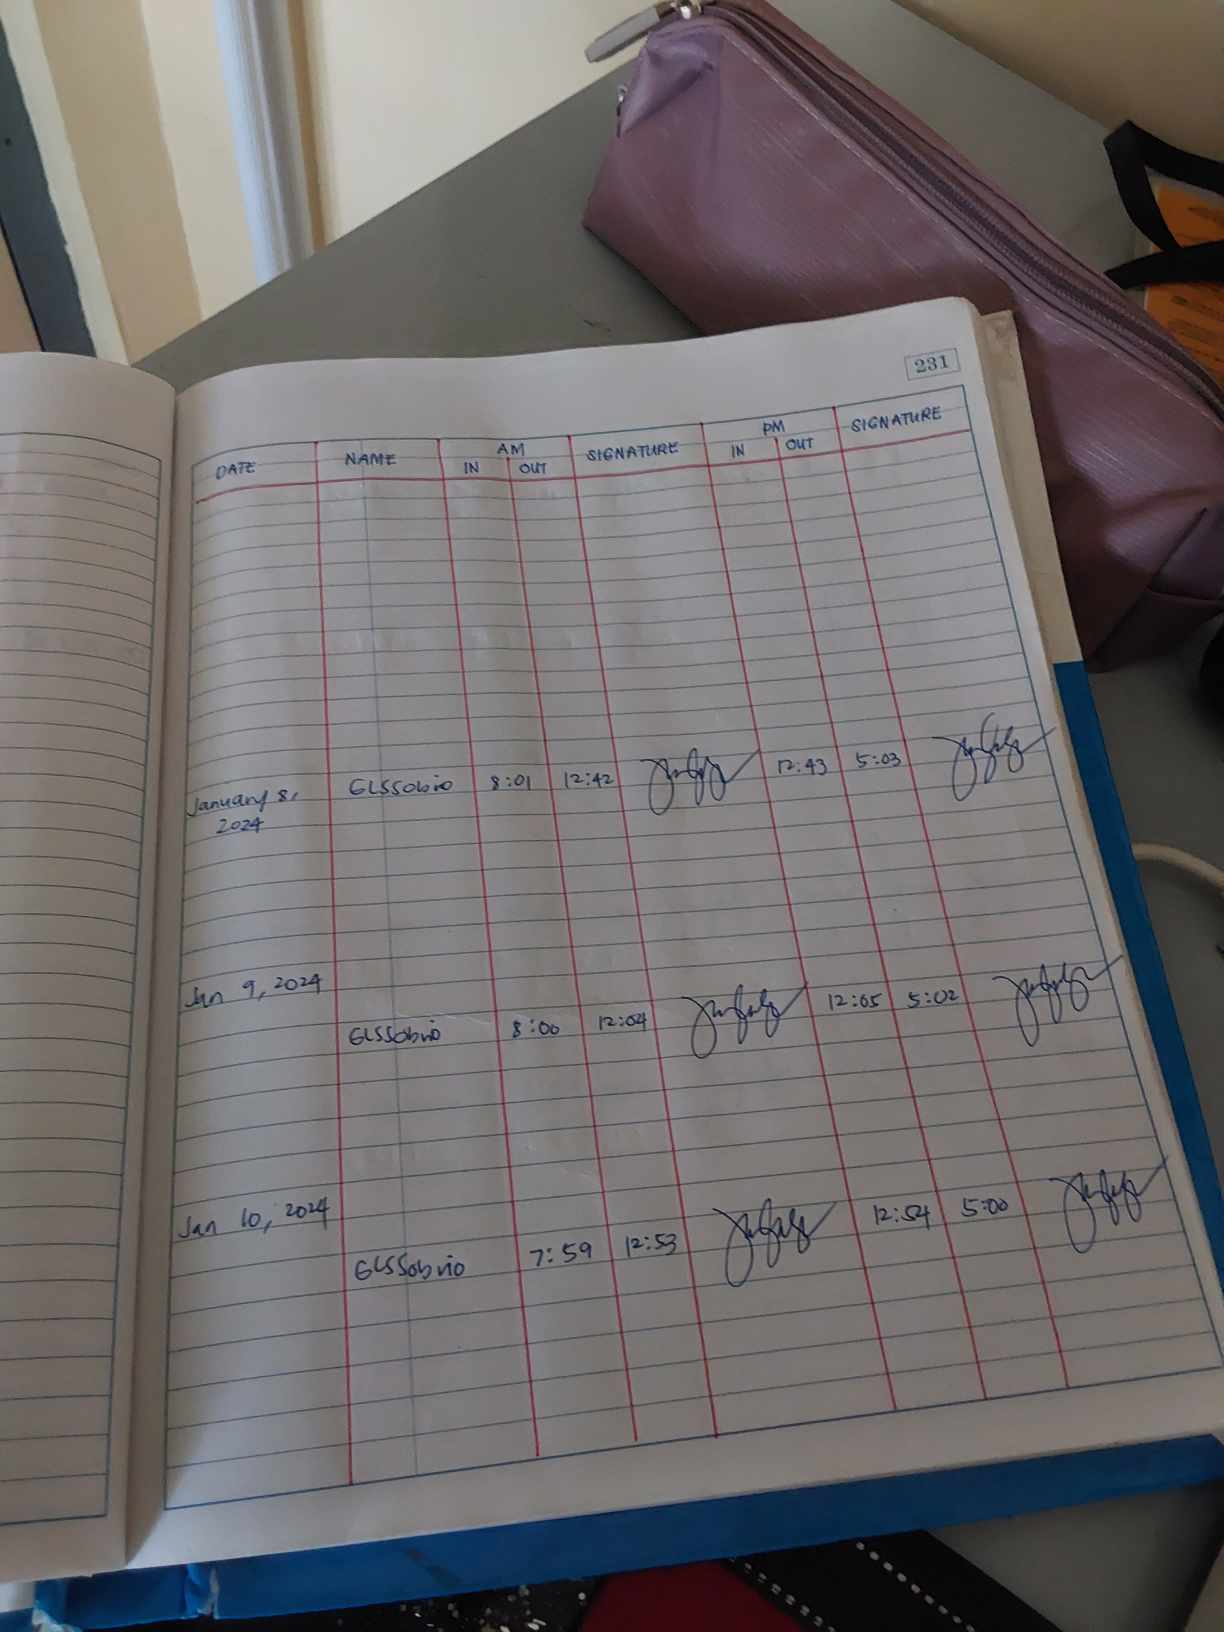 231
DATE NAME AM SIGNATURE PM SIGNATURE
IN OUT IN OUT
January 8, GLSSobrio 8:01 12:42 12:43 5:03
2024
Jan 9, 2024
GLSSobrio 8:00 12:04 12:05 5:02
Jan 10, 2024
GLSSobrio 7:59 12:53 12:54 5:00